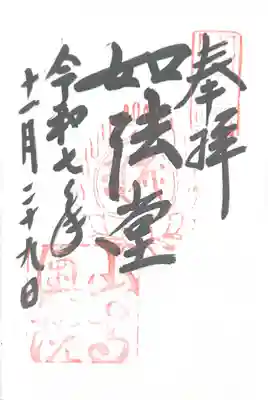 奉拝
如法堂
令和七年
十一月二十九日